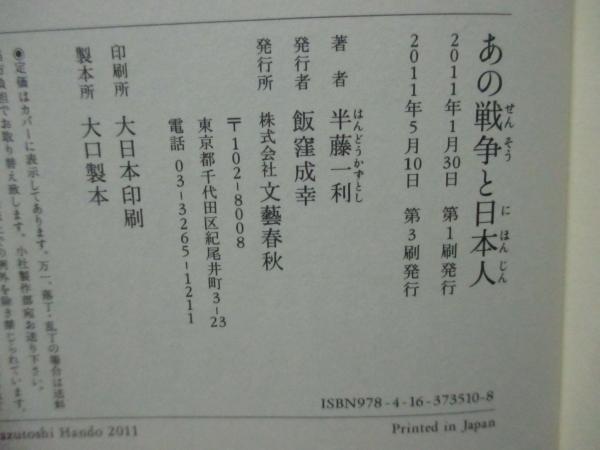 あの戦争と日本人
せん そう に ほん じん
2011年1月30日 第1刷発行
2011年5月10日 第3刷発行
著者 半藤一利
はんどうかずとし
発行者 飯窪成幸
発行所 株式会社 文藝春秋
〒102-8008
東京都千代田区紀尾井町3-23
電話 03-3265-1211
印刷所 大日本印刷
製本所 大口製本
●定価はカバーに表示してあります。万一、落丁・乱丁の場合は送料
でお取り替え致します。小社製作部宛お送り下さい。
の例外を除き禁じられています。
ISBN978-4-16-373510-8
azutoshi Hando 2011
Printed in Japan